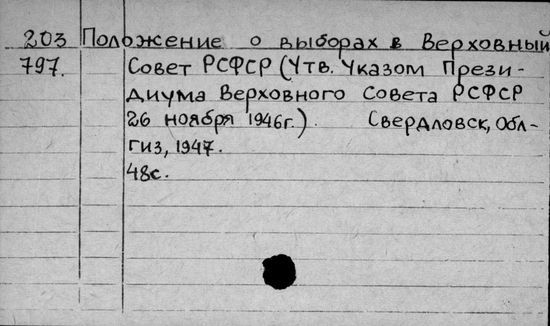 203 Положение о выборах в Верховный
797. Совет РСФСР (Утв. Указом Прези-
диума Верховного Совета РСФСР
26 ноября 1946г.). Свердловск, Обл-
гиз, 1947.
48с.